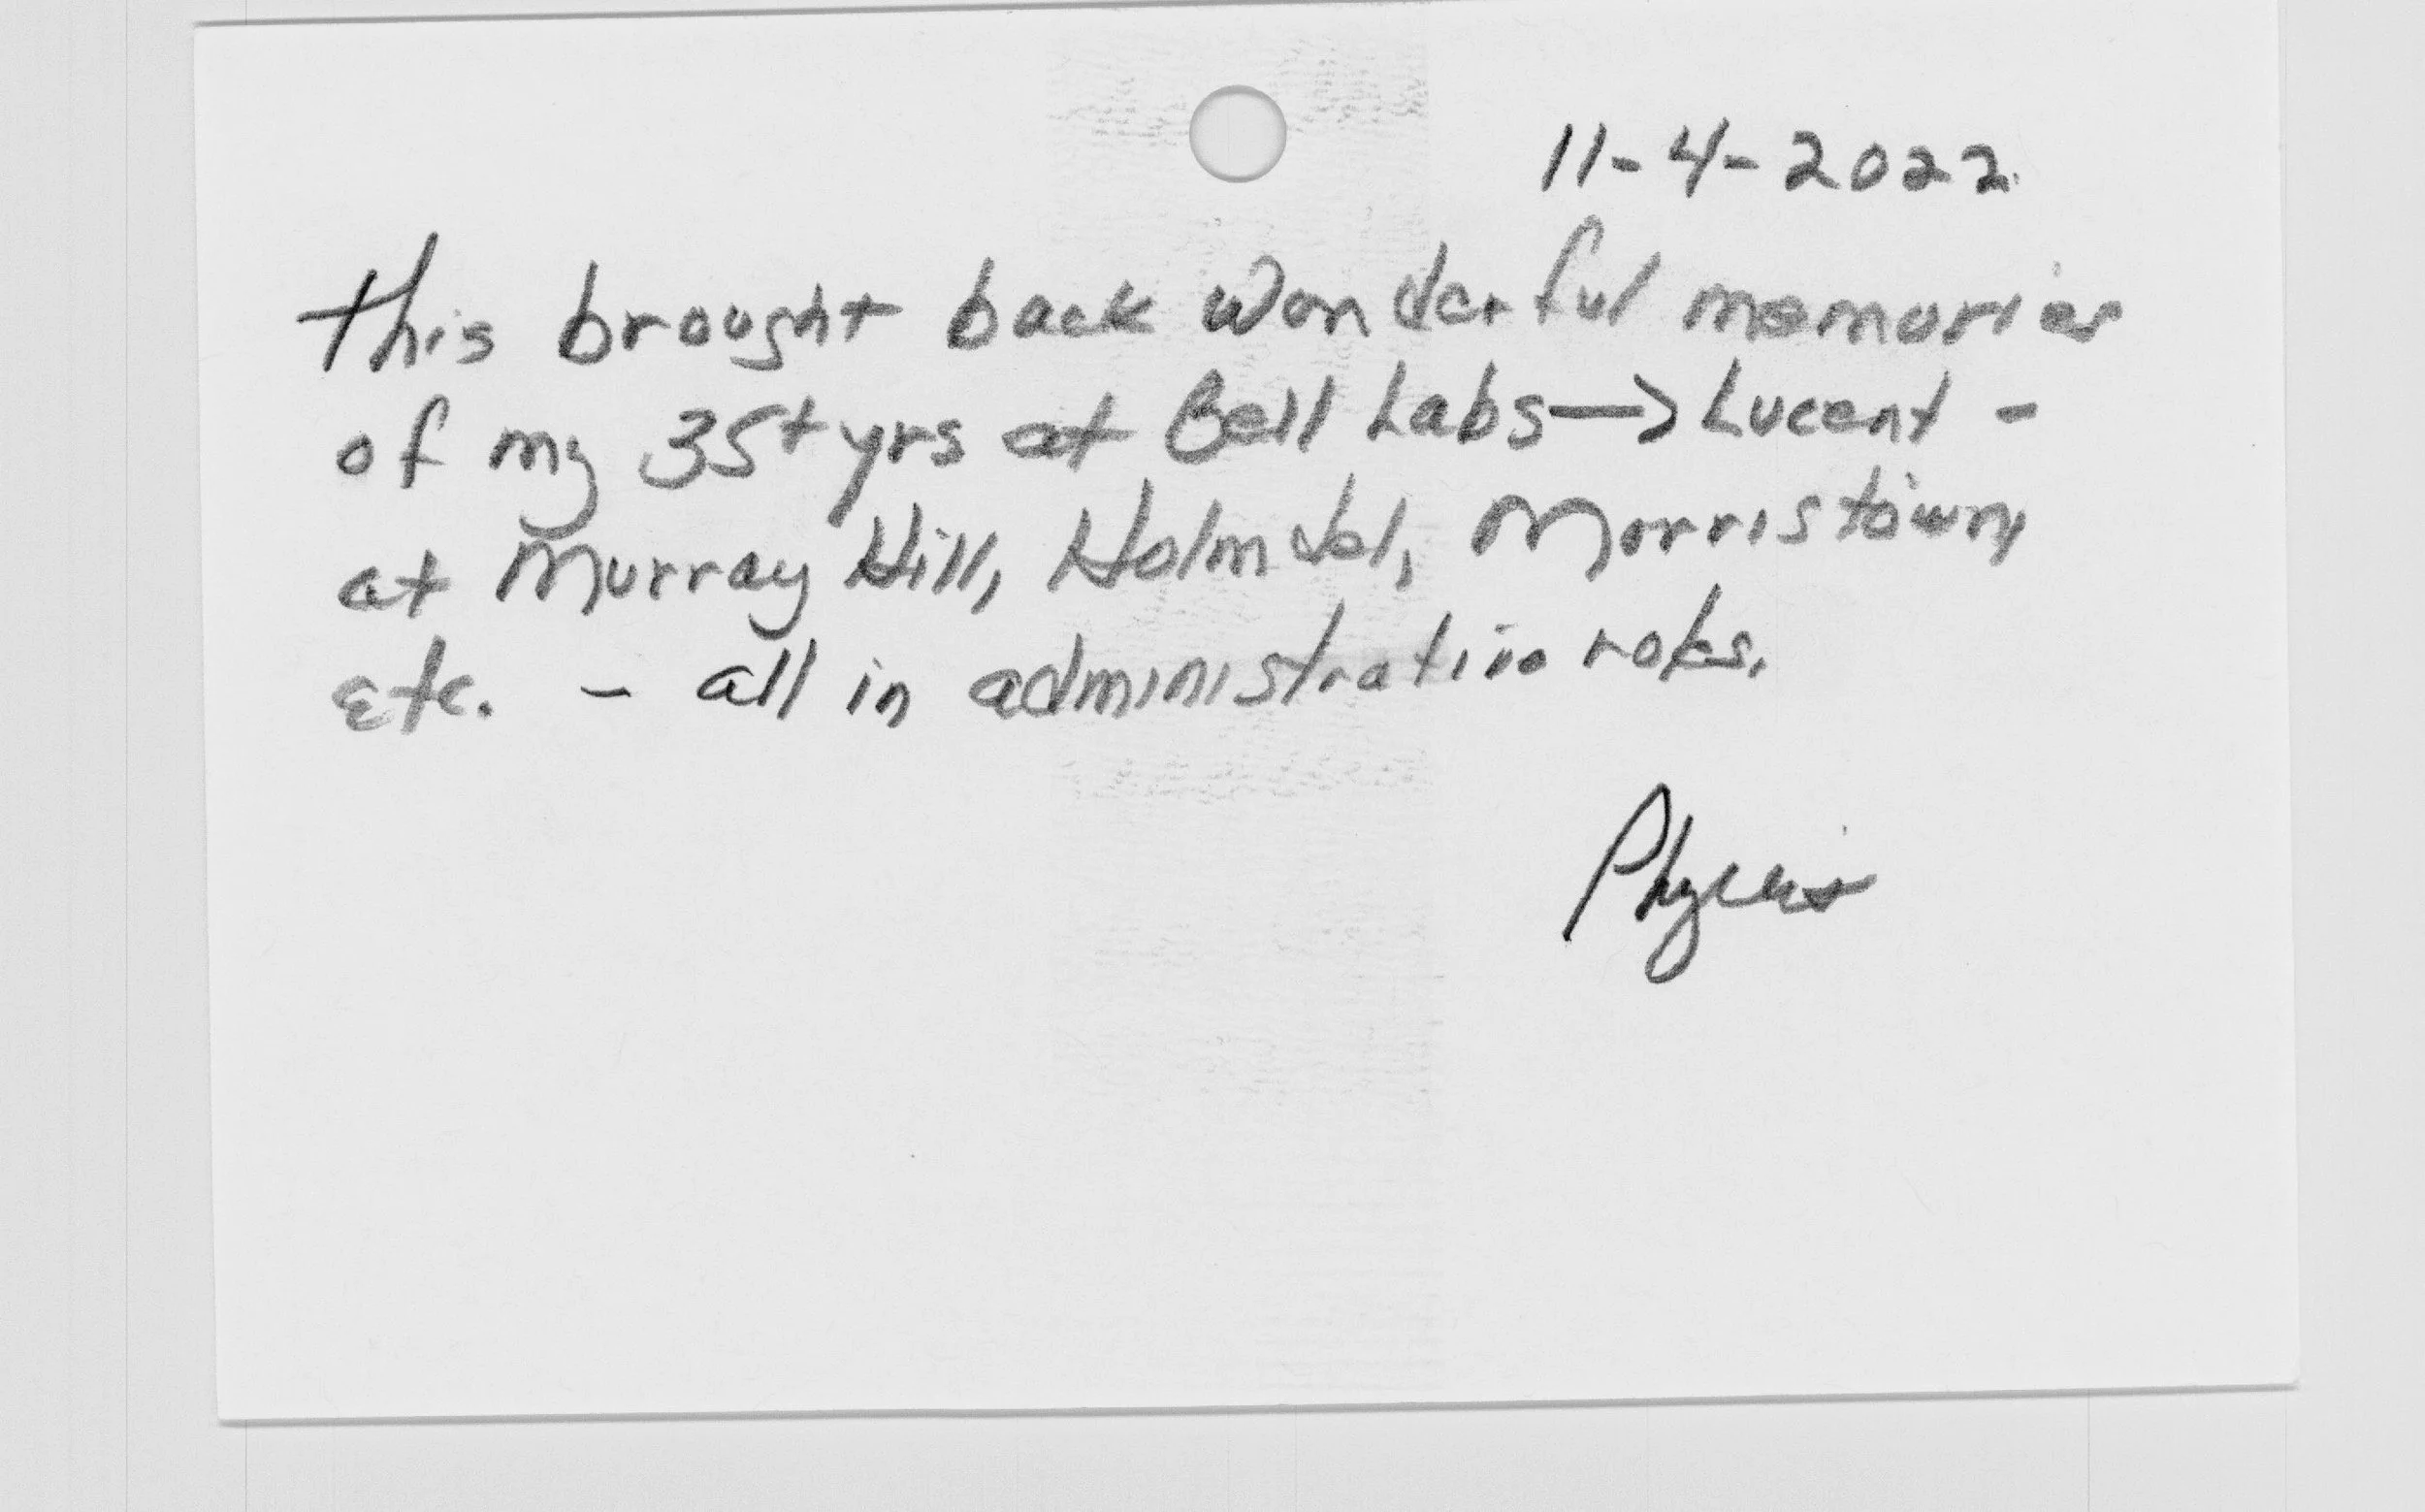 11-4-2022
This brought back wonderful memories
of my 35+ yrs at Bell Labs → Lucent -
at Murray Hill, Holmdel, Morristown,
etc. - all in administrative roles.
Phyllis